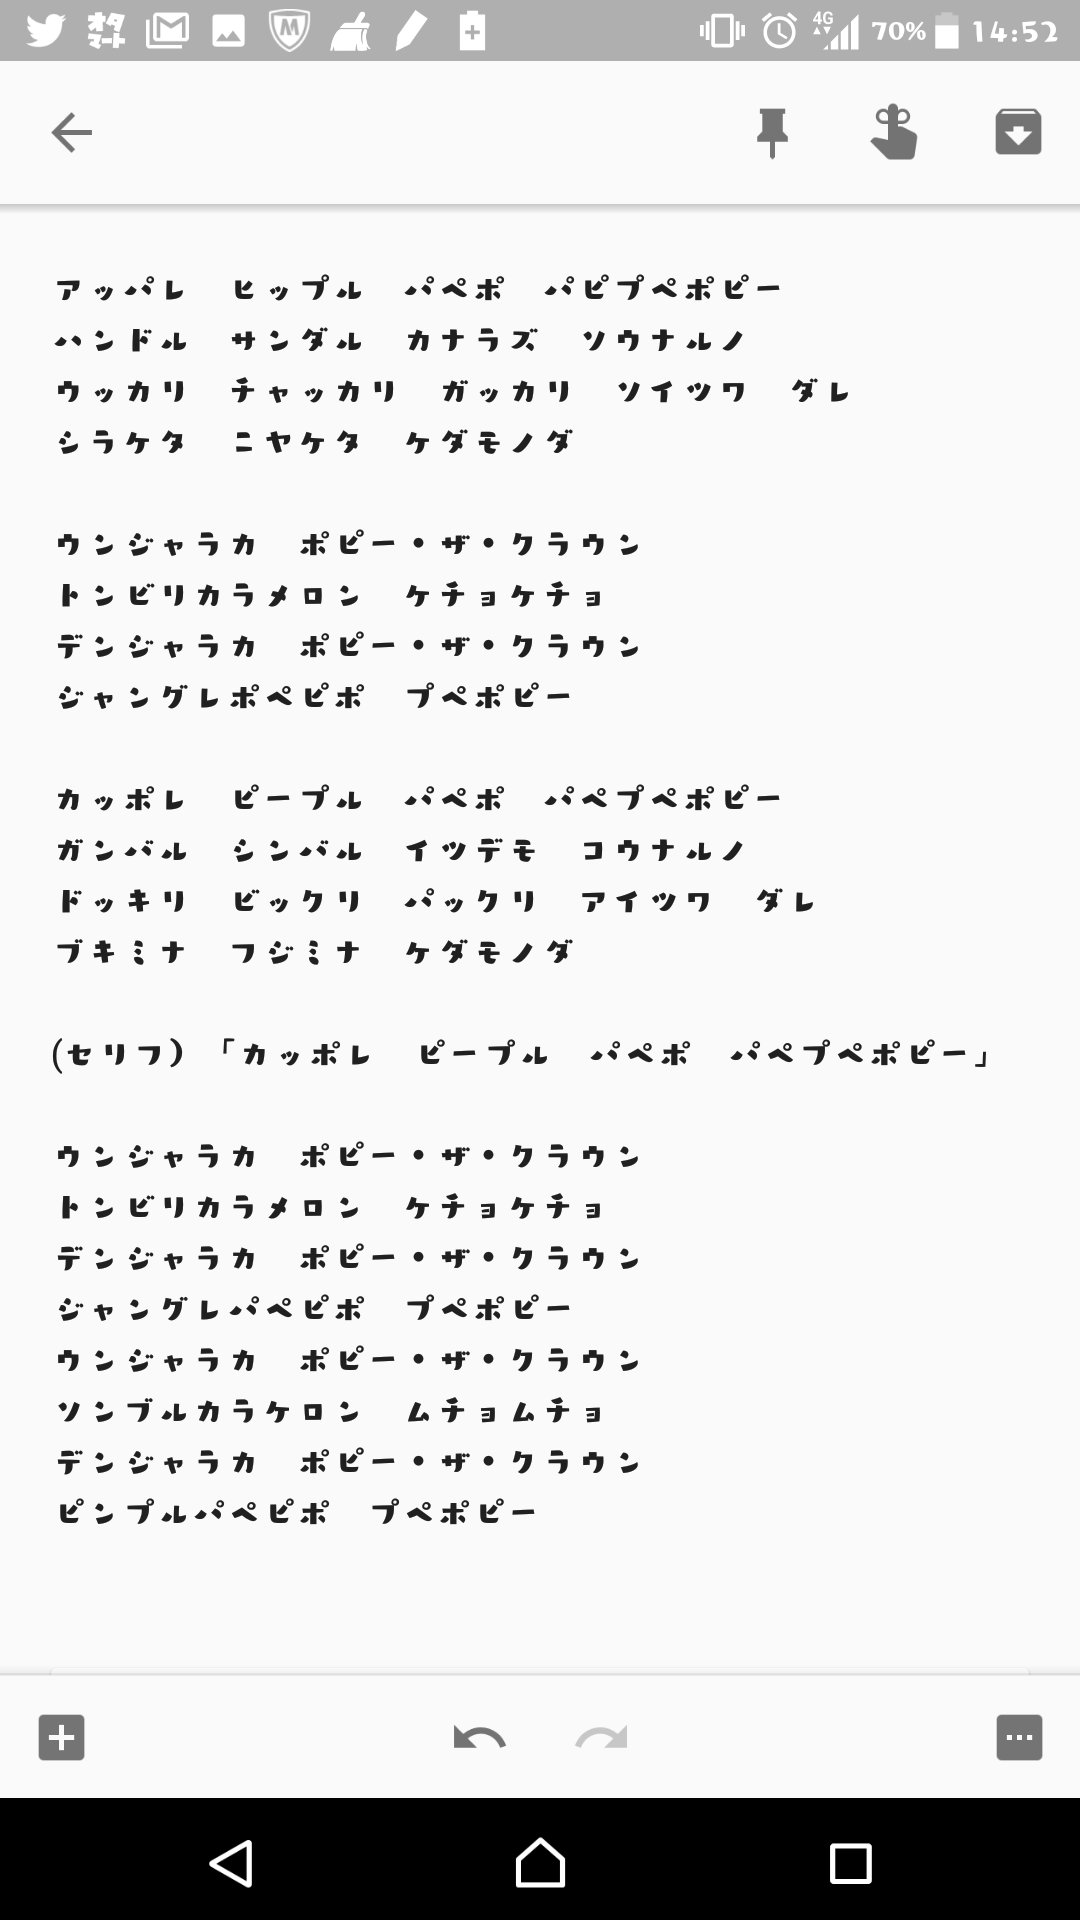 オタマート 4G 70% 14:52
アッパレ　ヒップル　パペポ　パピプペポピー
ハンドル　サンダル　カナラズ　ソウナルノ
ウッカリ　チャッカリ　ガッカリ　ソイツワ　ダレ
シラケタ　ニヤケタ　ケダモノダ
ウンジャラカ　ポピー・ザ・クラウン
トンビリカラメロン　ケチョケチョ
デンジャラカ　ポピー・ザ・クラウン
ジャングレポペピポ　プペポピー
カッポレ　ピープル　パペポ　パペプペポピー
ガンバル　シンバル　イツデモ　コウナルノ
ドッキリ　ビックリ　パックリ　アイツワ　ダレ
ブキミナ　フジミナ　ケダモノダ
(セリフ)　「カッポレ　ピープル　パペポ　パペプペポピー」
ウンジャラカ　ポピー・ザ・クラウン
トンビリカラメロン　ケチョケチョ
デンジャラカ　ポピー・ザ・クラウン
ジャングレパペピポ　プペポピー
ウンジャラカ　ポピー・ザ・クラウン
ソンブルカラケロン　ムチョムチョ
デンジャラカ　ポピー・ザ・クラウン
ピンプルパペピポ　プペポピー